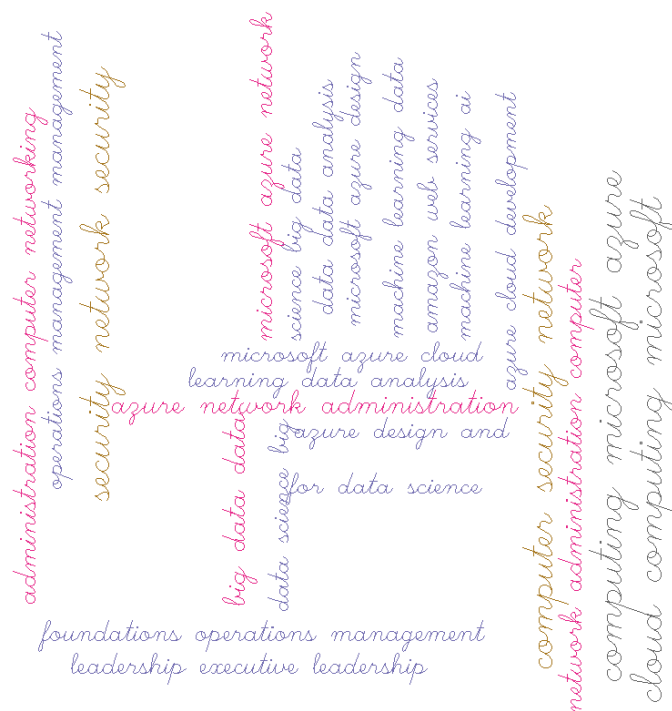 administration computer networking
operations management management
security network security
microsoft azure network
science big data
data data analysis
microsoft azure design
machine learning data
amazon web services
machine learning ai
azure cloud development
computer security network
network administration computer
computing microsoft azure
cloud computing microsoft
microsoft azure cloud
learning data analysis
azure network administration
azure design and
big data data
data science big
for data science
foundations operations management
leadership executive leadership